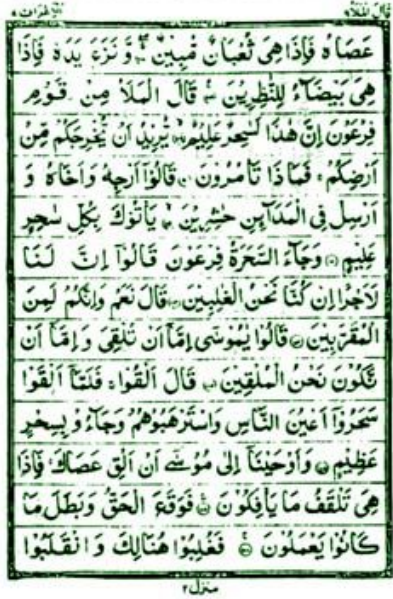 قال الملا ٩
الاعراف ٧
عَصَاهُ فَاِذَا هِیَ ثُعْبَانٌ مُّبِیْنٌ ۚۖ وَّ نَزَعَ یَدَهٗ فَاِذَا
هِیَ بَیْضَآءُ لِلنّٰظِرِیْنَ ۠ قَالَ الْمَلَاُ مِنْ قَوْمِ
فِرْعَوْنَ اِنَّ هٰذَا لَسٰحِرٌ عَلِیْمٌ ۙ یُّرِیْدُ اَنْ یُّخْرِجَكُمْ مِّنْ
اَرْضِكُمْ ۚ فَمَا ذَا تَاْمُرُوْنَ قَالُوْۤا اَرْجِهْ وَ اَخَاهُ وَ
اَرْسِلْ فِی الْمَدَآىِٕنِ حٰشِرِیْنَ ۙ یَاْتُوْكَ بِكُلِّ سٰحِرٍ
عَلِیْمٍ وَ جَآءَ السَّحَرَةُ فِرْعَوْنَ قَالُوْۤا اِنَّ لَنَا
لَاَجْرًا اِنْ كُنَّا نَحْنُ الْغٰلِبِیْنَ قَالَ نَعَمْ وَ اِنَّكُمْ لَمِنَ
الْمُقَرَّبِیْنَ قَالُوْا یٰمُوْسٰۤی اِمَّاۤ اَنْ تُلْقِیَ وَ اِمَّاۤ اَنْ
نَّكُوْنَ نَحْنُ الْمُلْقِیْنَ قَالَ اَلْقُوْا ۚ فَلَمَّاۤ اَلْقَوْا
سَحَرُوْۤا اَعْیُنَ النَّاسِ وَ اسْتَرْهَبُوْهُمْ وَ جَآءُوْ بِسِحْرٍ
عَظِیْمٍ وَ اَوْحَیْنَاۤ اِلٰی مُوْسٰۤی اَنْ اَلْقِ عَصَاكَ ۚ فَاِذَا
هِیَ تَلْقَفُ مَا یَاْفِكُوْنَ ۚ فَوَقَعَ الْحَقُّ وَ بَطَلَ مَا
كَانُوْا یَعْمَلُوْنَ ۚ فَغُلِبُوْا هُنَالِكَ وَ انْقَلَبُوْا
منزل ٢